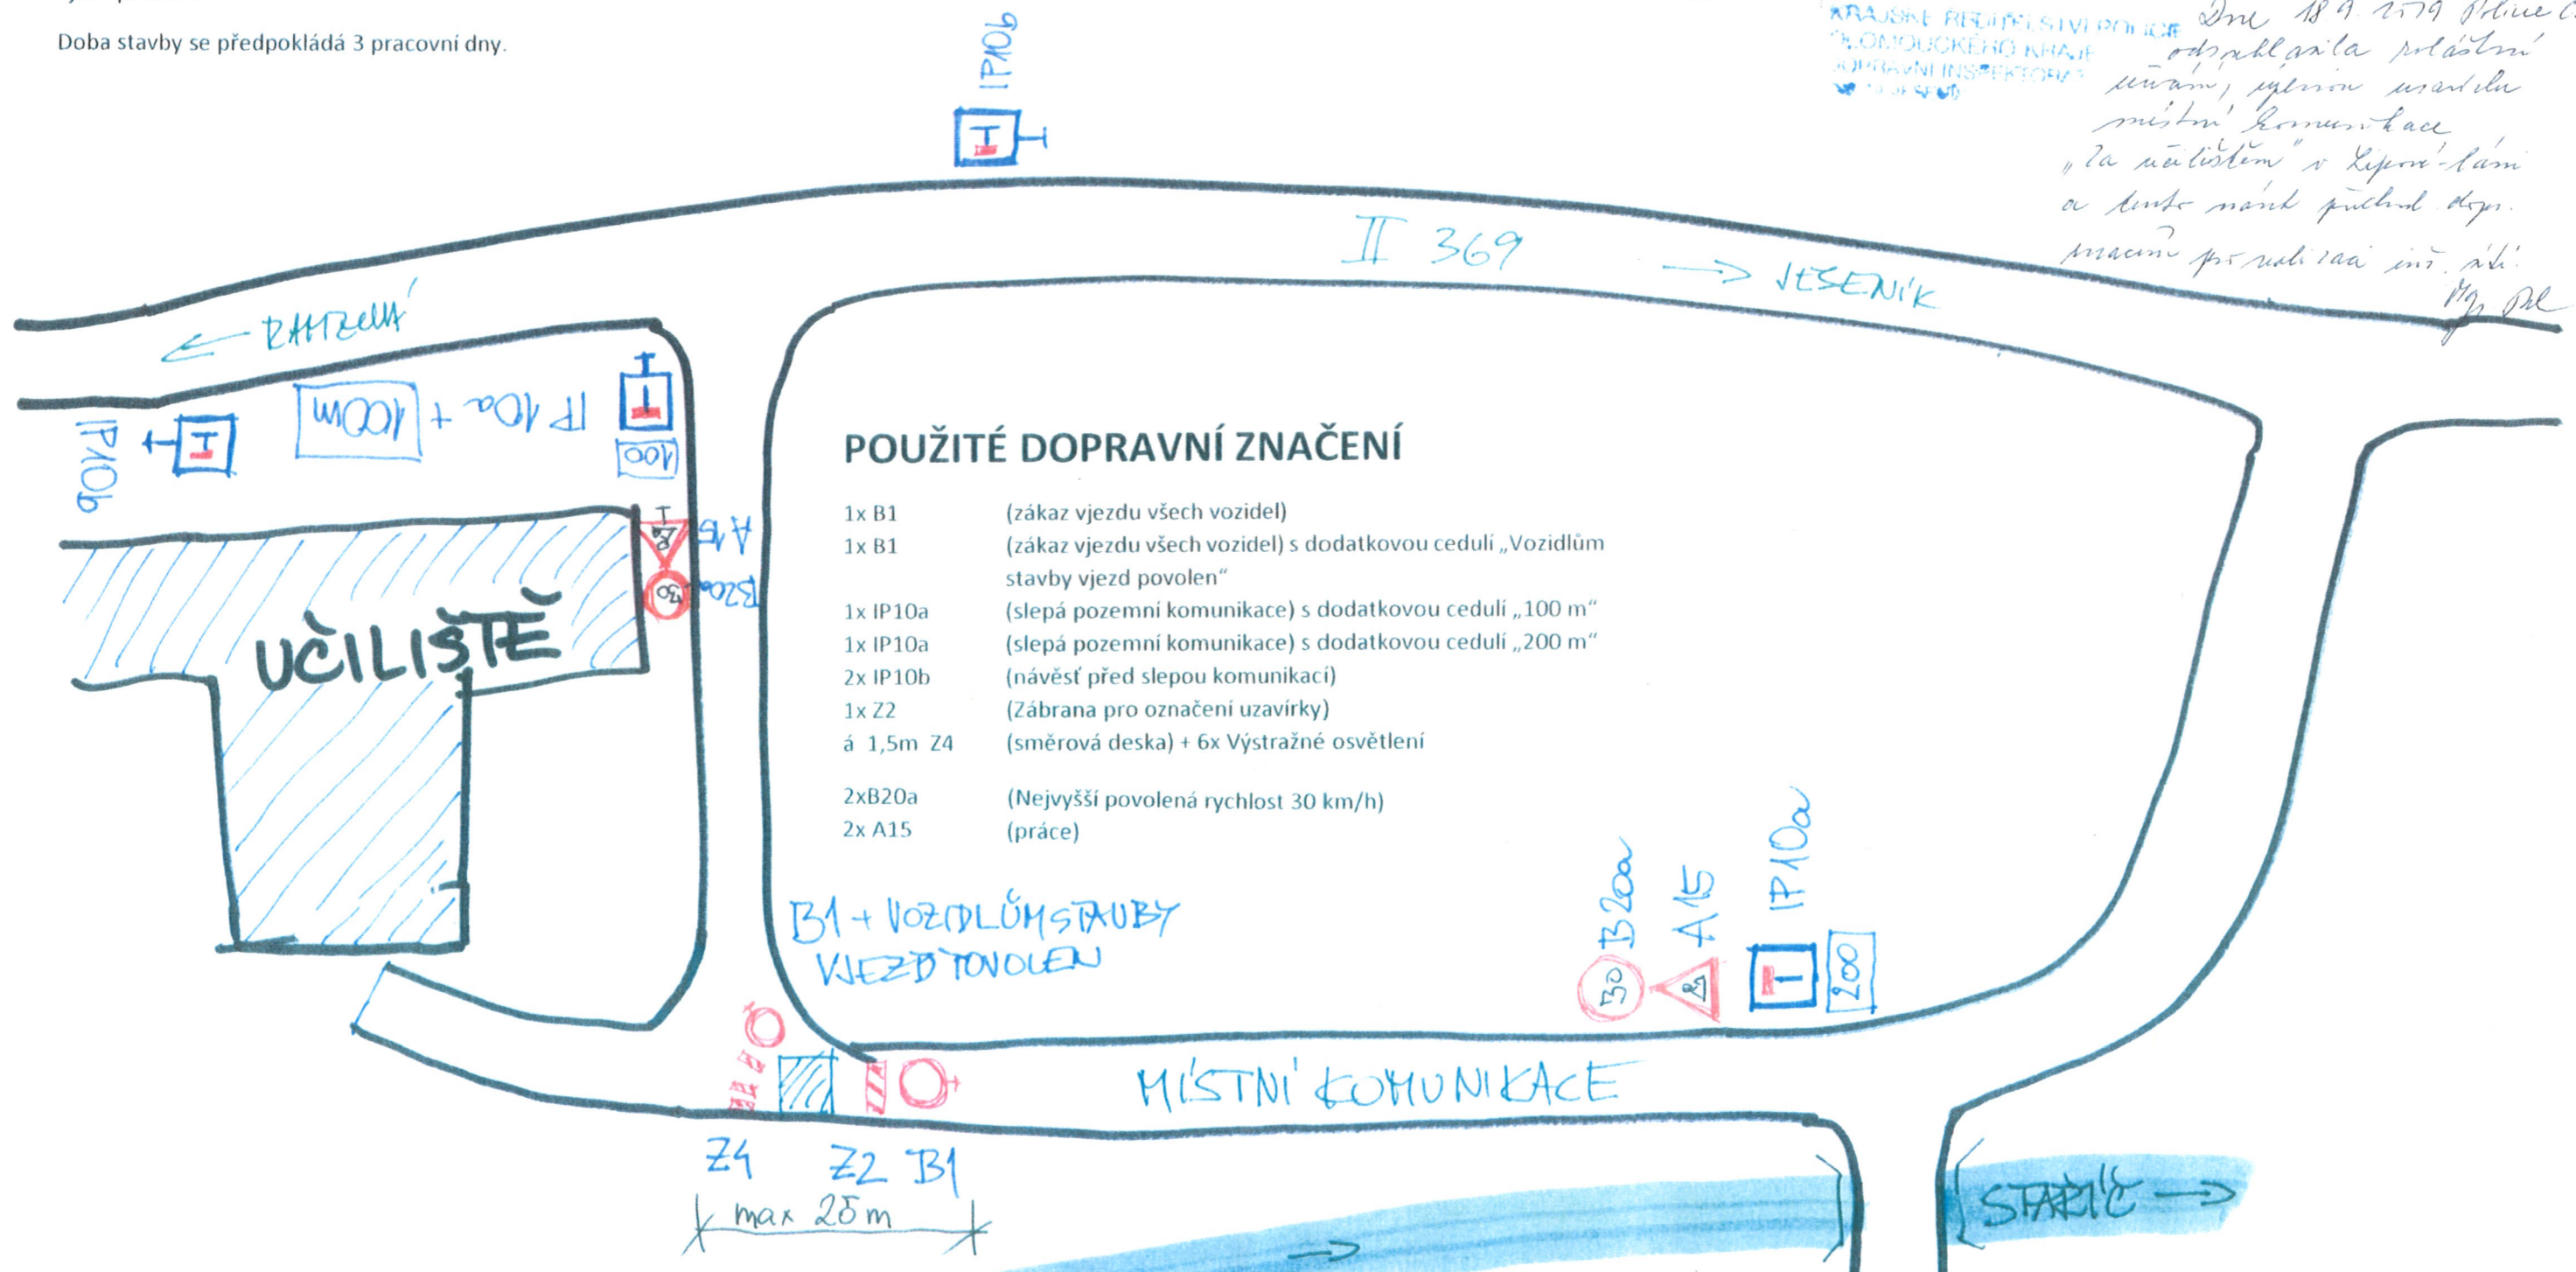 Doba stavby se předpokládá 3 pracovní dny.
IP10b
KRAJSKÉ ŘEDITELSTVÍ POLICIE
OLOMOUCKÉHO KRAJE
DOPRAVNÍ INSPEKTORÁT
Dne 18.9.
místní komunikace
„Za učilištěm" v Lipové-lázni
II 369
→ JESENÍK
← RAMZOVÁ
IP10a + 100m
100
IP10b
A15
B20a
30
UČILIŠTĚ
POUŽITÉ DOPRAVNÍ ZNAČENÍ
1x B1 (zákaz vjezdu všech vozidel)
1x B1 (zákaz vjezdu všech vozidel) s dodatkovou cedulí „Vozidlům
stavby vjezd povolen“
1x IP10a (slepá pozemní komunikace) s dodatkovou cedulí „100 m“
1x IP10a (slepá pozemní komunikace) s dodatkovou cedulí „200 m“
2x IP10b (návěsť před slepou komunikací)
1x Z2 (Zábrana pro označení uzavírky)
á 1,5m Z4 (směrová deska) + 6x Výstražné osvětlení
2xB20a (Nejvyšší povolená rychlost 30 km/h)
2x A15 (práce)
B1 + VOZIDLŮM STAVBY
VJEZD POVOLEN
B20a
A15
IP10a
30
200
MÍSTNÍ KOMUNIKACE
Z4 Z2 B1
max 25m
STAŘÍČ →